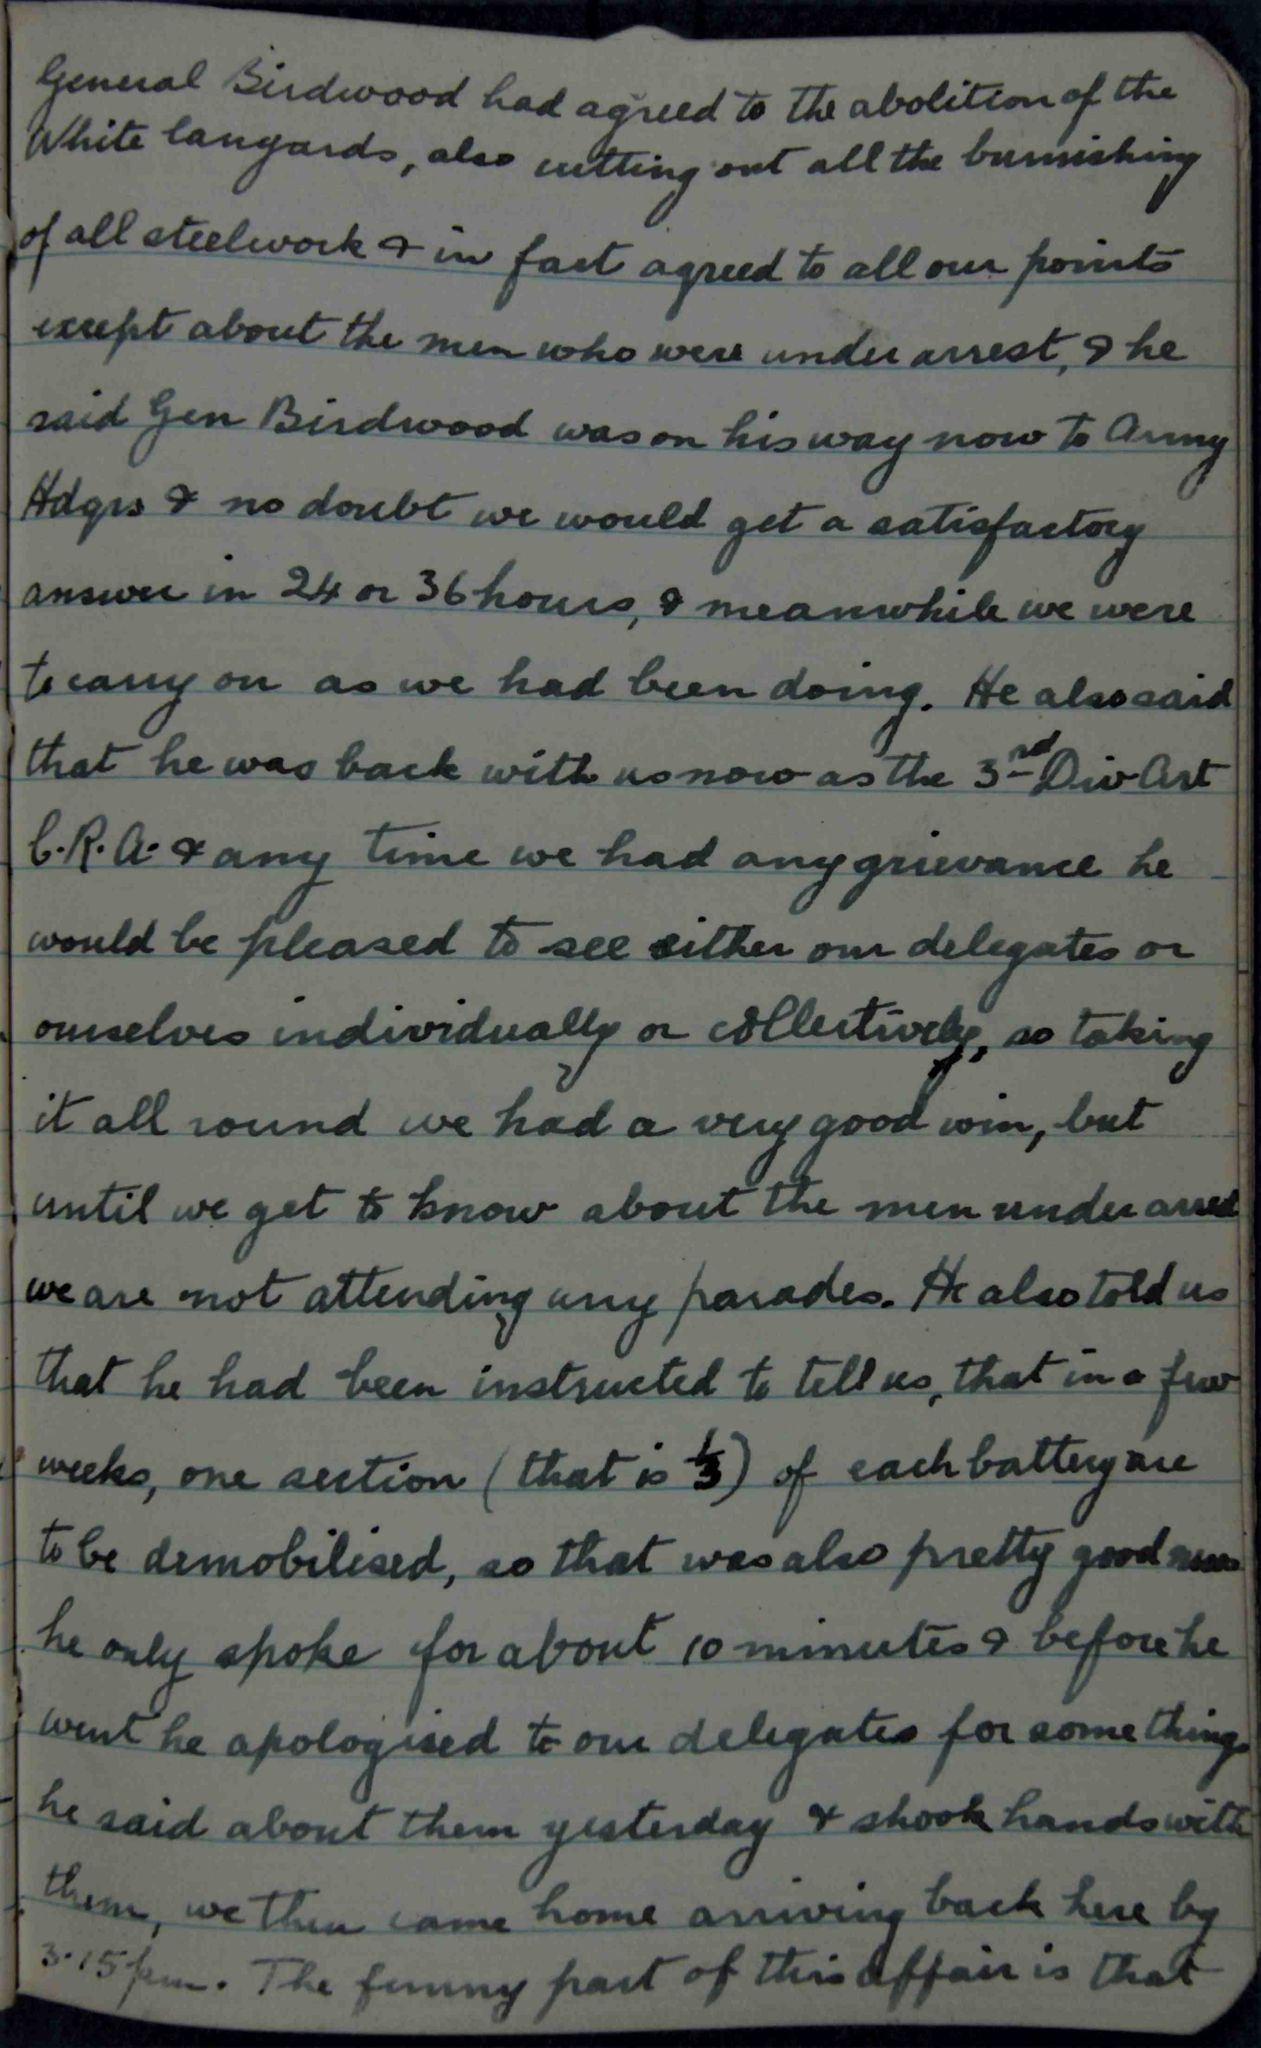 General Birdwood had agreed to the abolition of the
White lanyards, also cutting out all the burnishing
of all steelwork & in fact agreed to all our points
except about the men who were under arrest, & he
said Gen Birdwood was on his way now to Army
Hdqrs & no doubt we would get a satisfactory
answer in 24 or 36 hours, & meanwhile we were
to carry on as we had been doing. He also said
that he was back with us now as the 3rd Div Art
C.R.A. & any time we had any grievance he
would be pleased to see either our delegates or
ourselves individually or collectively, so taking
it all round we had a very good win, but
until we get to know about the men under arrest
we are not attending any parades. He also told us
that he had been instructed to tell us, that in a few
weeks, one section (that is 1/3) of each battery are
to be demobilised, so that was also pretty good news
he only spoke for about 10 minutes & before he
went he apologised to our delegates for some things
he said about them yesterday & shook hands with
them, we then came home arriving back here by
3.15 pm. The funny part of this affair is that